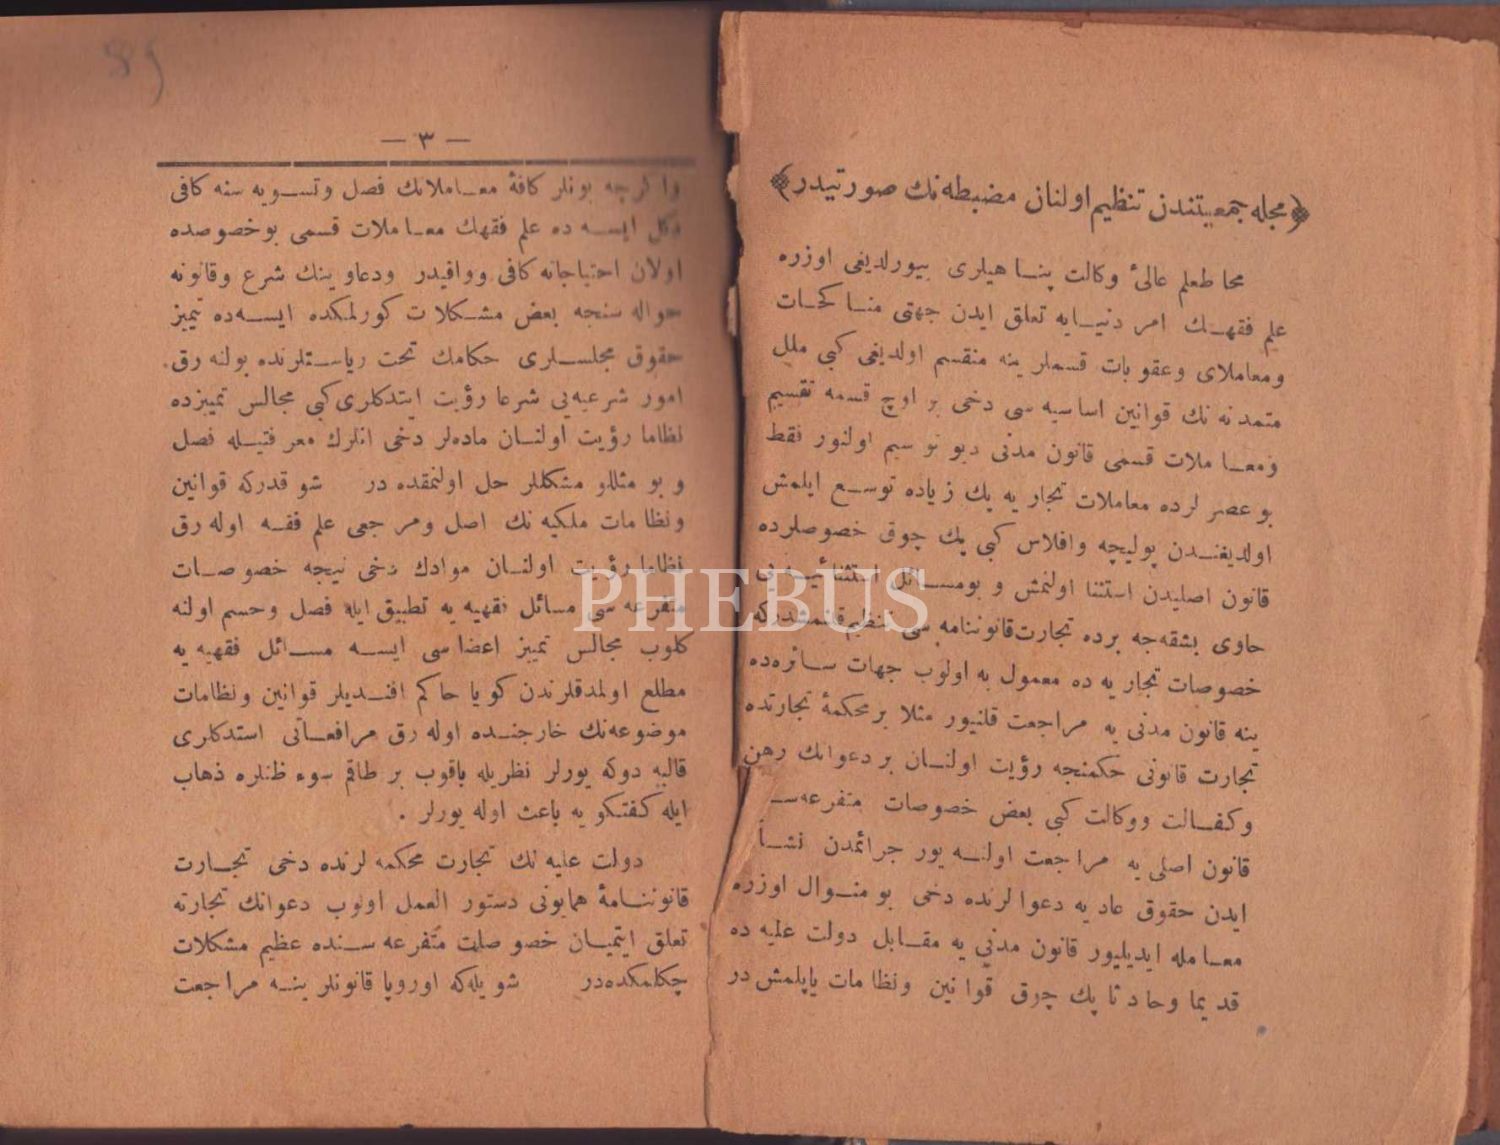 ﴿ مجله جمعیتندن تنظیم اولنان مضبطه نك صورتیدر ﴾
محاط علم عالیٔ وكالت پناهیلری بیورلدیغی اوزره
علم فقهك امر دنیایه تعلق ایدن جهتی مناكحات
ومعاملات وعقوبات قسملرینه منقسم اولدیغی كبی ملل
متمدنه نك قوانین اساسیه سی دخی بر اوچ قسمه تقسیم
ومعاملات قسمی قانون مدنی دیو توسیم اولنور فقط
بو عصرلرده معاملات تجاریه پك زیاده توسع ایلمش
اولدیغندن پولیچه وافلاس كبی پك چوق خصوصلرده
قانون اصلیدن استثنا اولنمش و بومسائل استثنائیه یی
حاوی بشقه جه برده تجارت قانوننامه سی تنظیم قلنمشدركه
خصوصات تجاریه ده معمول به اولوب جهات سائره ده
ینه قانون مدنی یه مراجعت قلنیور مثلا بر محكمهٔ تجارتده
تجارت قانونی حكمنجه رؤیت اولنان بر دعوانك رهن
وكفالت ووكالت كبی بعض خصوصات متفرعه سـ
قانون اصلی یه مراجعت اولنه یور جرائمدن نشأ
ایدن حقوق عادیه دعوالرنده دخی بو منوال اوزره
معامله ایدیلیور قانون مدنی یه مقابل دولت علیه ده
قدیما وحادثا پك چوق قوانین ونظامات یاپلمش در
— ٣ —
واكرچه بونلر كافهٔ معاملاتك فصل وتسویه سنه كافی
دكل ایسه ده علم فقهك معاملات قسمی بو خصوصده
اولان احتیاجاته كافی ووافیدر ودعاوینك شرع وقانونه
حواله سنجه بعض مشكلات كورلمكده ایسه ده تمییز
حقوق مجلسلری حكامك تحت ریاستلرنده بولنه رق
امور شرعیه یی شرعا رؤیت ایتدكلری كبی مجالس تمییزده
نظاما رؤیت اولنان ماده لر دخی انلرك معرفتیله فصل
و بو مثللو مشكللر حل اولنمقده در شو قدركه قوانین
ونظامات ملكیه نك اصل ومرجعی علم فقه اوله رق
نظاما رؤیت اولنان موادك دخی نیجه خصوصات
متفرعه سی مسائل فقهیه یه تطبیق ایله فصل وحسم اولنه
كلوب مجالس تمییز اعضاسی ایسه مسائل فقهیه یه
مطلع اولمدقلرندن كویا حاكم افندیلر قوانین ونظامات
موضوعه نك خارجنده اوله رق مرافعاتی استدكلری
قالبه دوكه یورلر نظریله باقوب بر طاقم سوء ظنلره ذهاب
ایله كفتكو یه باعث اوله یورلر .
دولت علیه نك تجارت محكمه لرنده دخی تجارت
قانوننامهٔ همایونی دستور العمل اولوب دعوانك تجارته
تعلق ایتمیان خصوصات متفرعه سنده عظیم مشكلات
چكلمكده در شویله كه اوروپا قانونلرینه مراجعت
PHEBUS